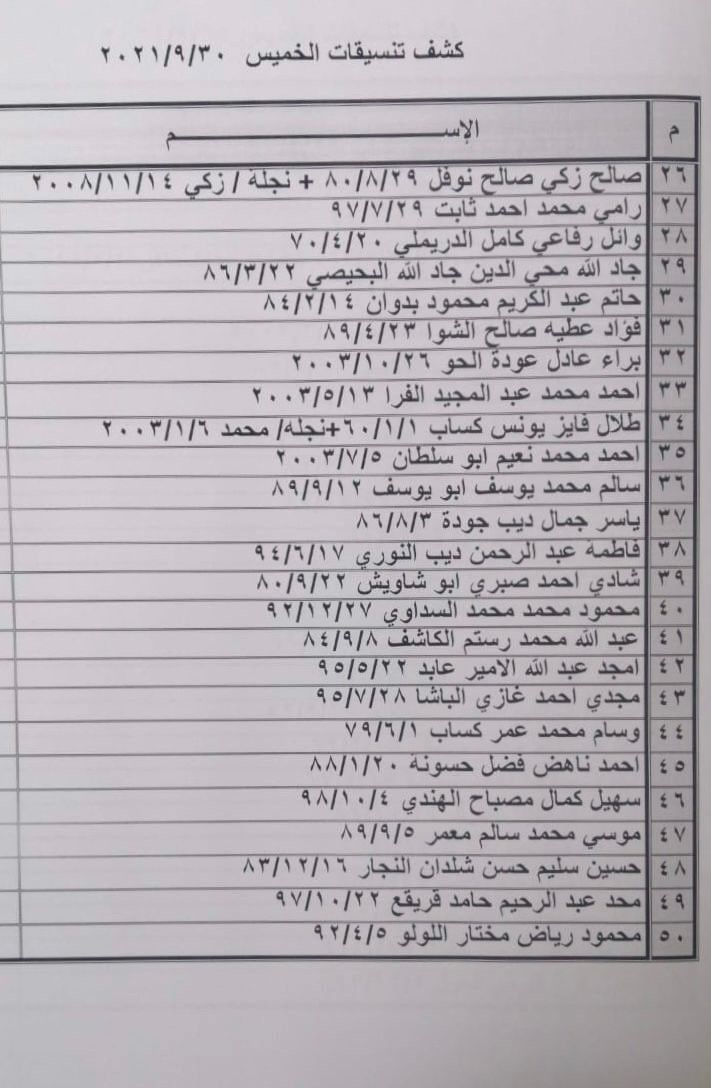 كشف تنسيقات الخميس ٢٠٢١/٩/٣٠
م الإســـــــــم
٢٦ صالح زكي صالح نوفل ٨٠/٨/٢٩ + نجلة / زكي ٢٠٠٨/١١/١٤
٢٧ رامي محمد احمد ثابت ٩٧/٧/٢٩
٢٨ وائل رفاعي كامل الدريملي ٧٠/٤/٢٠
٢٩ جاد الله محي الدين جاد الله البحيصي ٨٦/٣/٢٢
٣٠ حاتم عبد الكريم محمود بدوان ٨٤/٢/١٤
٣١ فؤاد عطيه صالح الشوا ٨٩/٤/٢٣
٣٢ براء عادل عودة الحو ٢٠٠٣/١٠/٢٦
٣٣ احمد محمد عبد المجيد الفرا ٢٠٠٣/٥/١٣
٣٤ طلال فايز يونس كساب ٦٠/١/١+نجله/ محمد ٢٠٠٣/١/٦
٣٥ احمد محمد نعيم ابو سلطان ٢٠٠٣/٧/٥
٣٦ سالم محمد يوسف ابو يوسف ٨٩/٩/١٢
٣٧ ياسر جمال ديب جودة ٨٦/٨/٣
٣٨ فاطمة عبد الرحمن ديب النوري ٩٤/٦/١٧
٣٩ شادي احمد صبري ابو شاويش ٨٠/٩/٢٢
٤٠ محمود محمد محمد السداوي ٩٢/١٢/٢٧
٤١ عبد الله محمد رستم الكاشف ٨٤/٩/٨
٤٢ امجد عبد الله الامير عابد ٩٥/٥/٢٢
٤٣ مجدي احمد غازي الباشا ٩٥/٧/٢٨
٤٤ وسام محمد عمر كساب ٧٩/٦/١
٤٥ احمد ناهض فضل حسونة ٨٨/١/٢٠
٤٦ سهيل كمال مصباح الهندي ٩٨/١٠/٤
٤٧ موسي محمد سالم معمر ٨٩/٩/٥
٤٨ حسين سليم حسن شلدان النجار ٨٣/١٢/١٦
٤٩ محد عبد الرحيم حامد قريقع ٩٧/١٠/٢٢
٥٠ محمود رياض مختار اللولو ٩٢/٤/٥